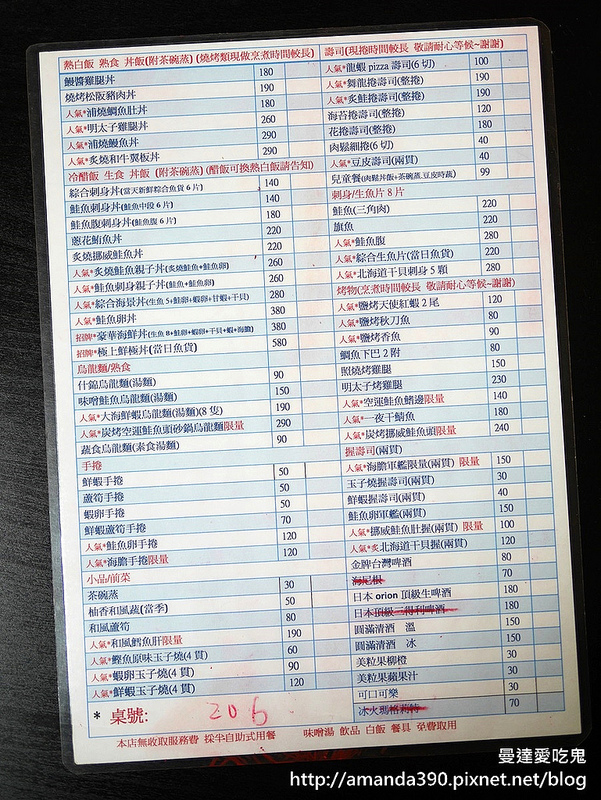 熱白飯 熟食 丼飯(附茶碗蒸) (燒烤類現做烹煮時間較長)
鰻醬雞腿丼 180
燒烤松阪豬肉丼 190
人氣*浦燒鯛魚肚丼 180
人氣*明太子雞腿丼 260
人氣*浦燒鰻魚丼 290
人氣*炙燒和牛翼板丼 290
冷醋飯 生食 丼飯 (附茶碗蒸) (醋飯可換熱白飯請告知)
綜合刺身丼(當天新鮮綜合魚貨 6 片) 140
鮭魚刺身丼(鮭魚中段 6 片) 140
鮭魚腹刺身丼(鮭魚腹 6 片) 180
蔥花鮪魚丼 220
炙燒挪威鮭魚丼 220
人氣*炙燒鮭魚親子丼(炙燒鮭魚+鮭魚卵) 260
人氣*鮭魚刺身親子丼(鮭魚+鮭魚卵) 260
人氣*綜合海景丼(生魚 5+鮭卵+蝦卵+甘蝦+干貝) 280
人氣*鮭魚卵丼 380
招牌*豪華海鮮丼(生魚 8+鮭卵+蝦卵+干貝+蝦+海膽) 380
招牌*極上鮮極丼(當日魚貨) 580
烏龍麵/熟食
什錦烏龍麵(湯麵) 90
味噌鮭魚烏龍麵(湯麵) 150
人氣*大海鮮蝦烏龍麵(湯麵)(8 隻) 190
人氣*炭烤空運鮭魚頭砂鍋烏龍麵限量 290
蔬食烏龍麵(素食湯麵) 90
手捲
鮮蝦手捲 50
蘆筍手捲 50
蝦卵手捲 50
鮮蝦蘆筍手捲 70
人氣*鮭魚卵手捲 120
人氣*海膽手捲限量 120
小品/前菜
茶碗蒸 30
柚香和風蔬(當季) 50
和風蘆筍 80
人氣*和風鱈魚肝限量 190
人氣*鰹魚原味玉子燒(4 貫) 60
人氣*蝦卵玉子燒(4 貫) 90
人氣*鮮蝦玉子燒(4 貫) 120
* 桌號: 206
壽司(現捲時間較長 敬請耐心等候~謝謝)
人氣*龍蝦 pizza 壽司(6 切) 100
人氣*舞龍捲壽司(整捲) 190
人氣*炙鮭捲壽司(整捲) 190
海苔捲壽司(整捲) 120
花捲壽司(整捲) 180
肉鬆細捲(6 切) 40
人氣*豆皮壽司(兩貫) 40
兒童餐(肉鬆丼飯+茶碗蒸.豆皮時蔬) 99
刺身/生魚片 8 片
鮭魚(三角肉) 220
旗魚 220
人氣*鮭魚腹 280
人氣*綜合生魚片(當日魚貨) 220
人氣*北海道干貝刺身 5 顆 280
烤物(烹煮時間較長 敬請耐心等候~謝謝)
人氣*鹽烤天使紅蝦 2 尾 120
人氣*鹽烤秋刀魚 80
人氣*鹽烤香魚 90
鯛魚下巴 2 附 80
照燒烤雞腿 150
明太子烤雞腿 230
人氣*空運鮭魚鰭邊限量 140
人氣*一夜干鯖魚 180
人氣*炭烤挪威鮭魚頭限量 240
握壽司(兩貫)
人氣*海膽軍艦限量(兩貫) 限量 150
玉子燒握壽司(兩貫) 30
鮮蝦握壽司(兩貫) 40
鮭魚卵軍艦(兩貫) 150
人氣*挪威鮭魚肚握(兩貫) 限量 100
人氣*炙北海道干貝握(兩貫) 120
金牌台灣啤酒 80
海尼根 70
日本 orion 頂級生啤酒 180
日本頂級三得利啤酒 180
圓滿清酒 溫 150
圓滿清酒 冰 150
美粒果柳橙 30
美粒果蘋果汁 30
可口可樂 30
冰火瑪格莉特 70
本店無收取服務費 採半自助式用餐 味噌湯 飲品 白飯 餐具 免費取用
曼達愛吃鬼
http://amanda390.pixnet.net/blog